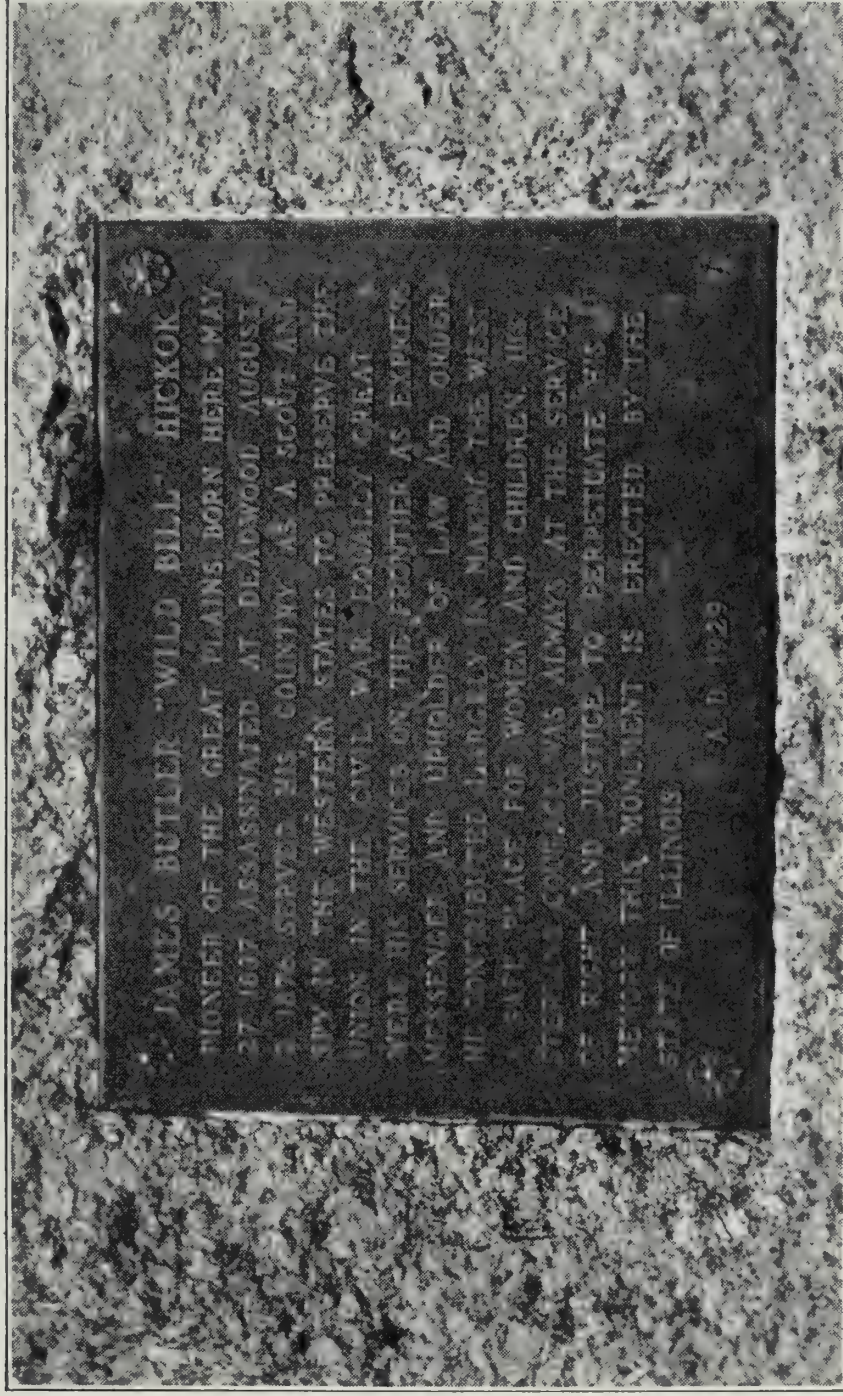 JAMES BUTLER "WILD BILL" HICKOK
PIONEER OF THE GREAT PLAINS BORN HERE MAY
27 1837 ASSASSINATED AT DEADWOOD AUGUST
2 1876 SERVED HIS COUNTRY AS A SCOUT AND
SPY IN THE WESTERN STATES TO PRESERVE THE
UNION IN THE CIVIL WAR EQUALLY GREAT
WERE HIS SERVICES ON THE FRONTIER AS EXPRESS
MESSENGER AND UPHOLDER OF LAW AND ORDER
HE CONTRIBUTED LARGELY IN MAKING THE WEST
A SAFE PLACE FOR WOMEN AND CHILDREN. HIS
COURAGE WAS ALWAYS AT THE SERVICE
OF RIGHT AND JUSTICE TO PERPETUATE HIS
MEMORY THIS MONUMENT IS ERECTED BY THE
STATE OF ILLINOIS
A. D. 1929